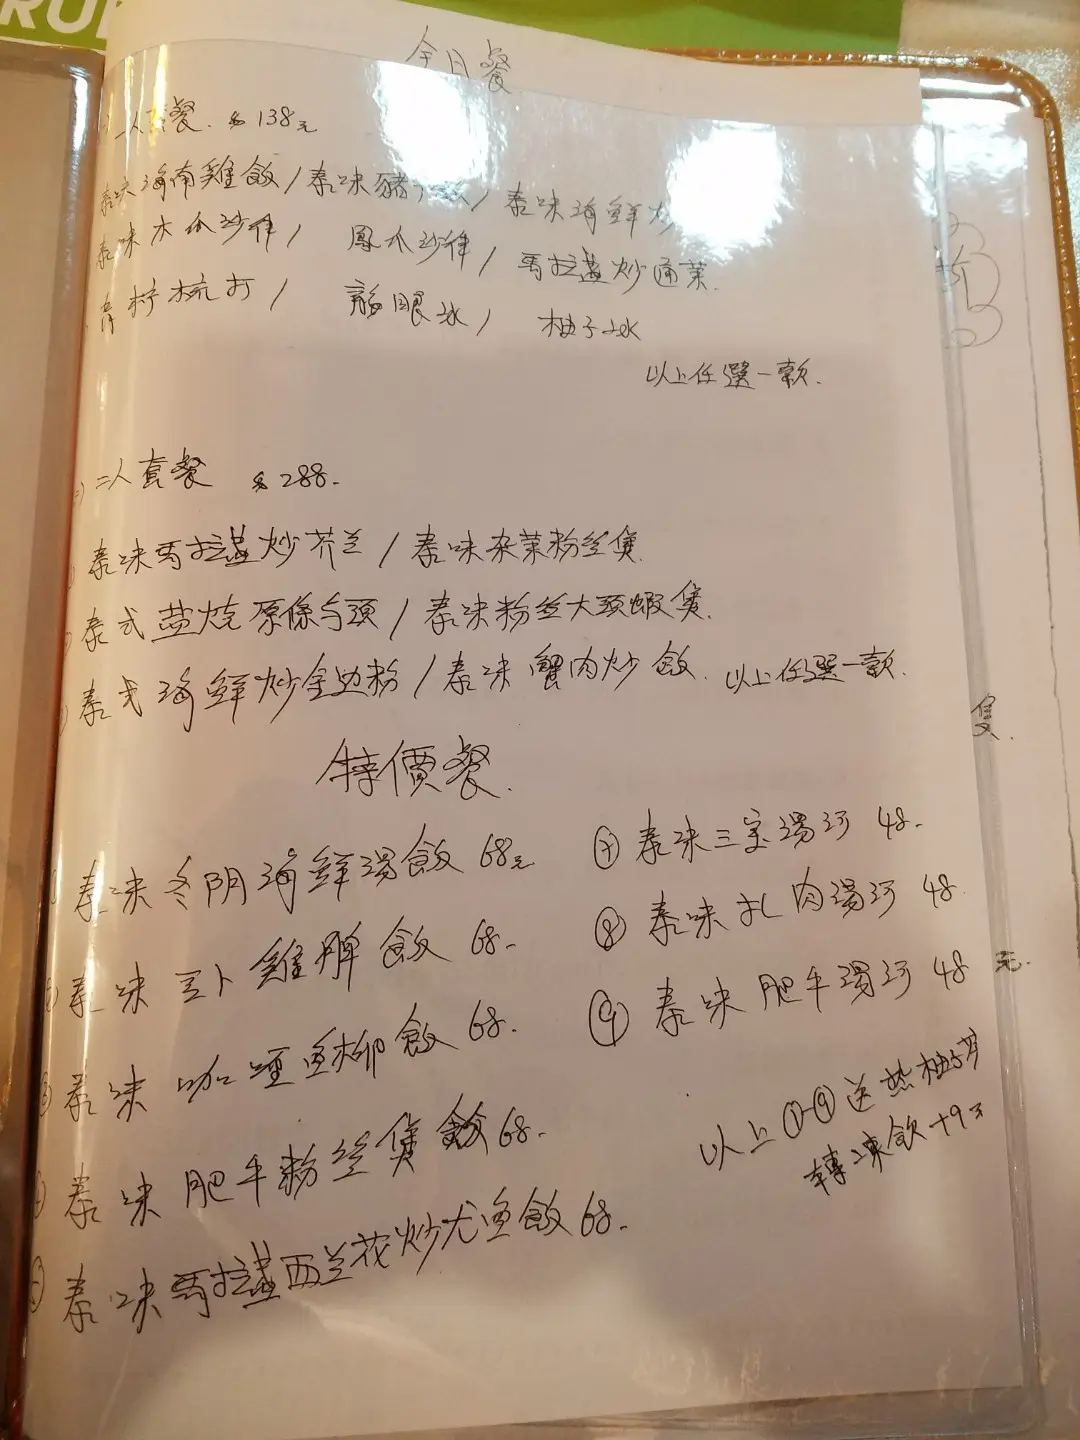 全日餐
一人套餐. $138元
泰味海南雞飯/泰味豬 飯/泰味海鮮炒
泰味木瓜沙律/ 鳳爪沙律/ 馬拉盞炒通菜.
青柠梳打/ 龍眼冰/ 柚子冰
以上任選一款.
二人套餐 $288-
泰味馬拉盞炒芥兰/泰味杂菜粉丝煲
泰式盐烧原條乌頭/泰味粉丝大頭蝦煲.
泰式海鮮炒金边粉/泰味蟹肉炒飯. 以上任選一款.
隻.
特價餐.
泰味冬阴海鮮湯飯 68元
泰味 卜雞脾飯 68-
泰味咖喱鱼柳飯 68-
④ 泰味肥牛粉丝煲飯 68-
⑤ 泰味馬拉盞西兰花炒尤鱼飯 68-
⑦ 泰味三宝湯河 48-
⑧ 泰味扎肉湯河 48
⑨ 泰味肥牛湯河 48元.
以上①-⑨送热柚子茶
轉凍飲+9元